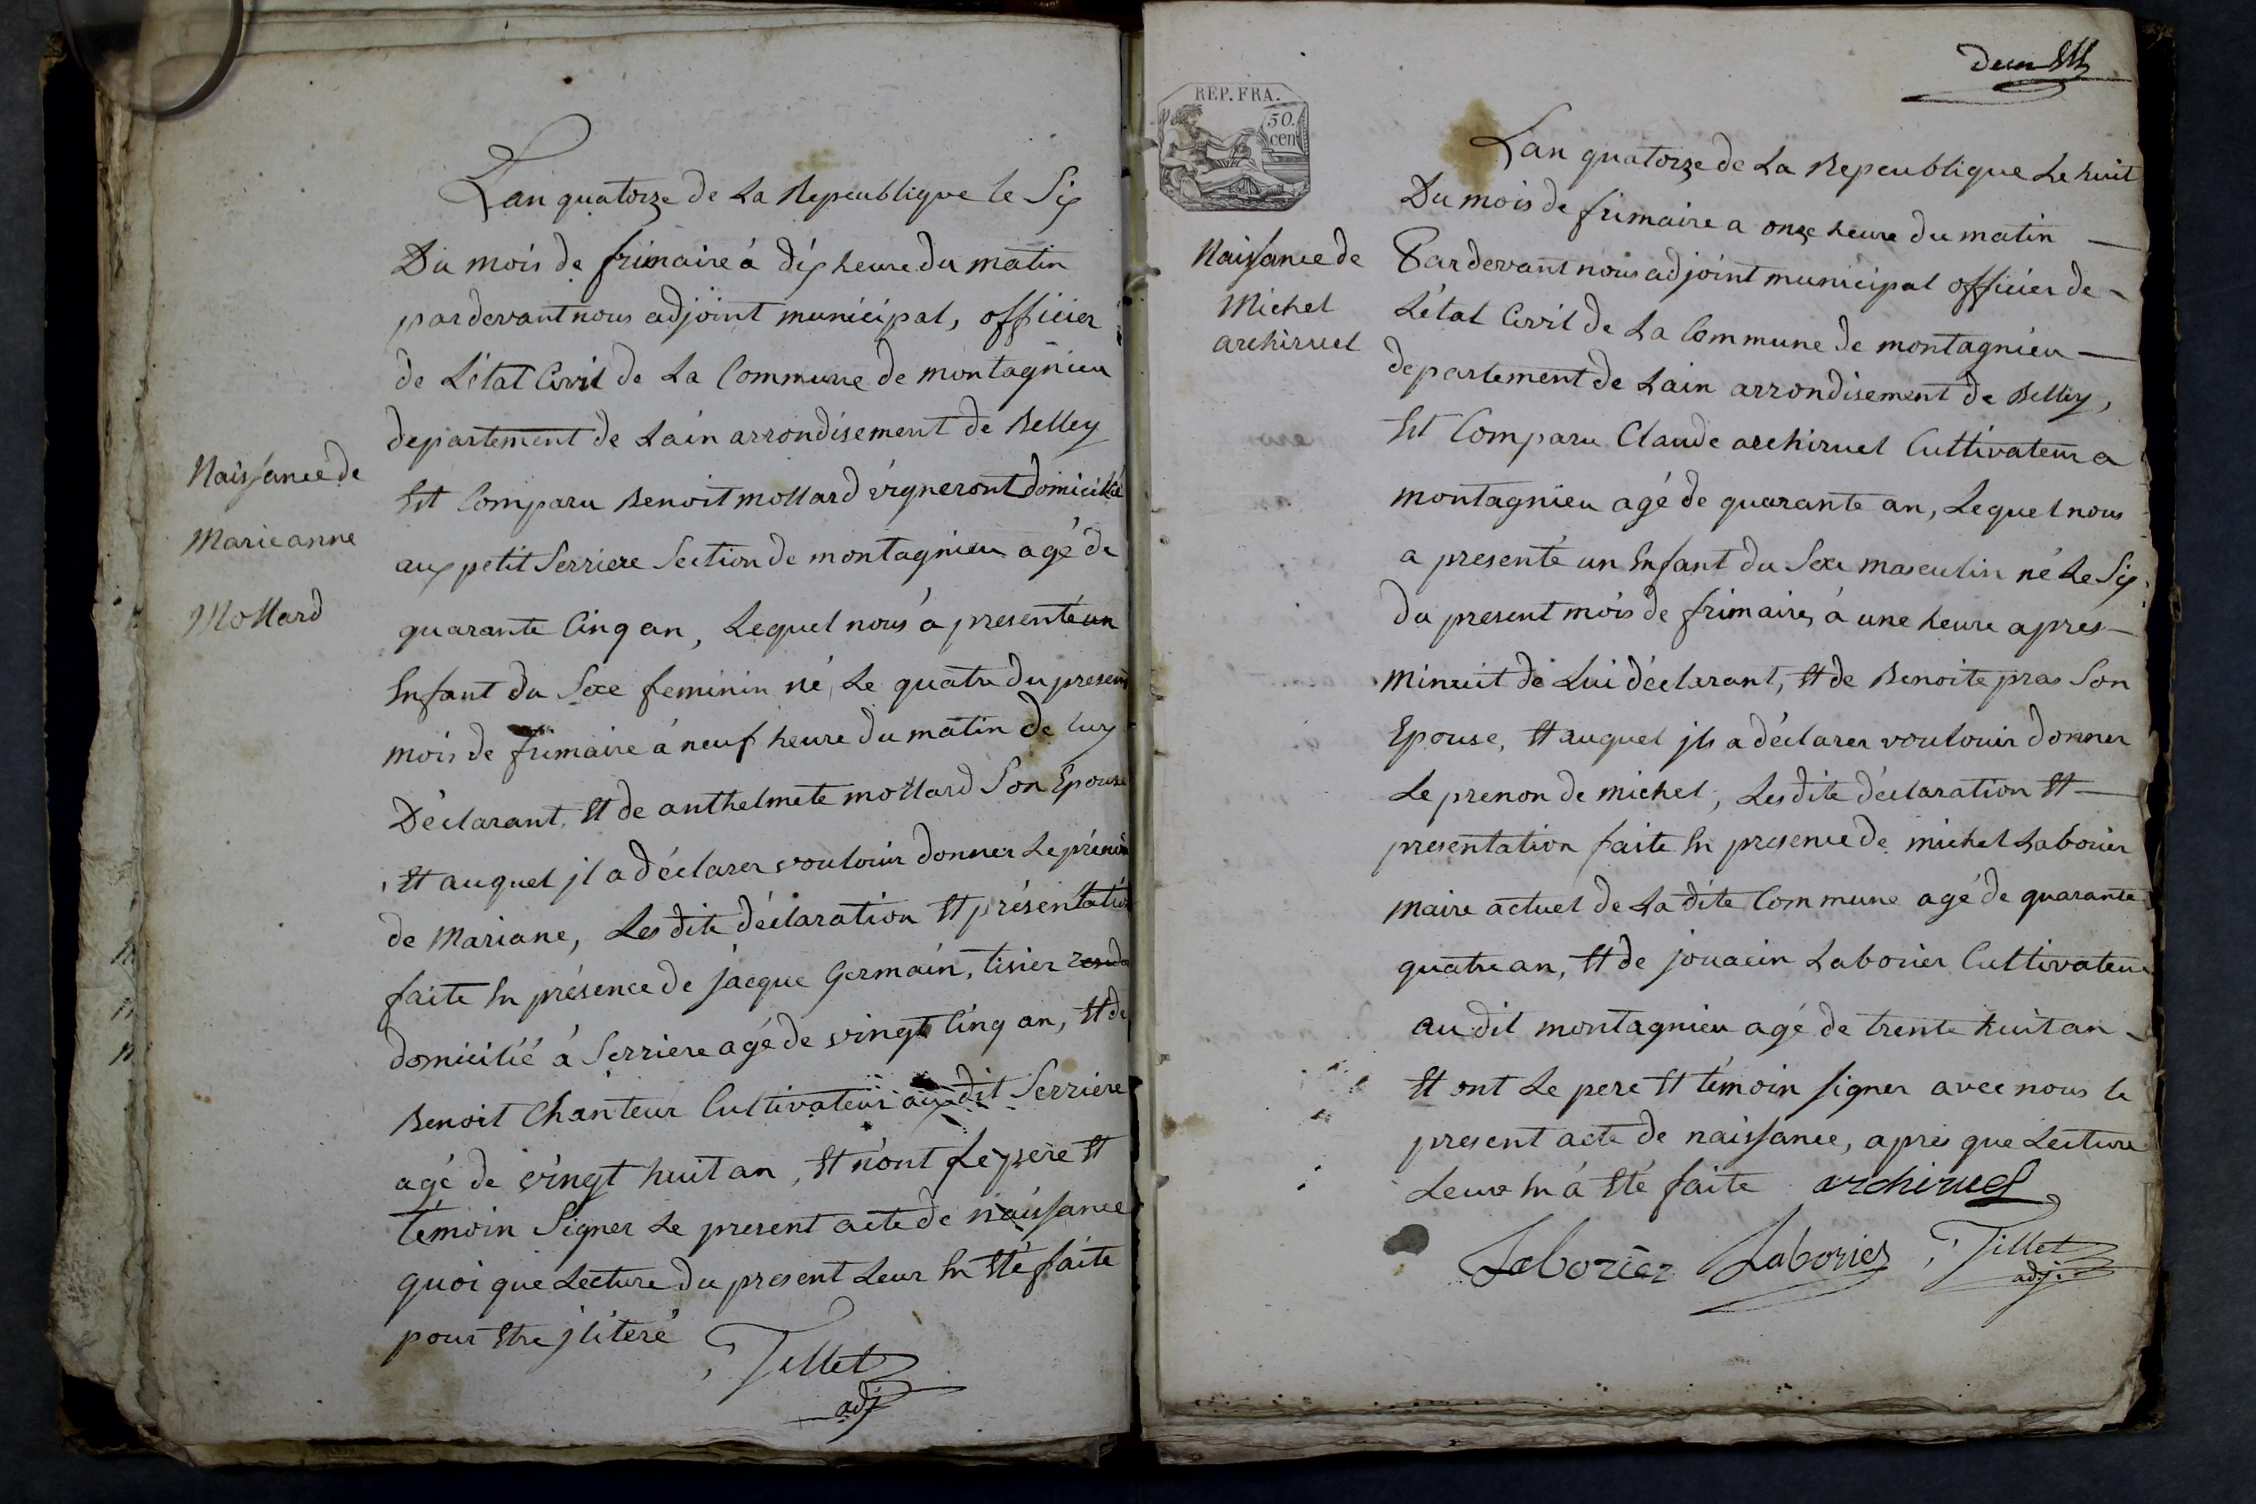 Naissance de
Marieanne
Mollard
Lan quatorze de La Repeublique le Six
Du mois de frimaire á dix heure du matin
pardevant nous adjoint municipal, officier
de L'état Civil de La Commune de montagnieu
departement de Lain arrondisement de Belley
Est Comparu Benoit mollard vigneront domicillié
aux petit Serriere Section de montagnieu agé de
quarante Cinq an, Lequel nous a presenté un
Enfant du Sexe feminin né, Le quatre du present
mois de frimaire á neuf heure du matin de luy
Déclarant, Et de anthelmete mollard Son Epouse
, Et auquel jl a déclarer vouloir donner Le prénom
de Mariane, Les dite déclaration Et présentation
faite En présence de jacque Germain, tisier
domicilié á Serriere agé de vingt Cinq an, Et de
Benoit Chanteur Cultivateur audit Serriere
agé de vingt huit an, Et n'ont Le pere Et
témoin Signer Le present acte de naissance
quoi que Lecture du present Leur En Eté faite
pour Etre jliteré
Tillet
adj
deux
REP. FRA.
50.
cen
Naissance de
Michel
archiruel
Lan quatorze de La Repeublique Le huit
Du mois de frimaire a onze heure du matin —
Pardevant nous adjoint municipal officier de -
L'état Civil de La Commune de montagnieu —
departement de Lain arrondisement de Belley,
Est Comparu Claude archiruel Cultivateur a
montagnieu agé de quarante an, Lequel nous
a presenté un Enfant du Sexe masculin né Le Six
du present mois de frimaire, á une heure apres —
minuit de Lui déclarant, Et de Benoite pras Son
Epouse, Et auquel jls a déclarer voulouir donner
Le prenon de michel, Les dite déclaration Et —
presentation faite En presence de michel Laborier
maire actuel de La dite Commune agé de quarante
quatre an, Et de jouacin Laborier Cultivateur
audit montagnieu agé de trente huit an -
Et ont Le pere Et témoin signer avec nous le
present acte de naissance, apres que Lecture
Leure En á Eté faite archiruel
Laborier Laborier Tillet
adj.